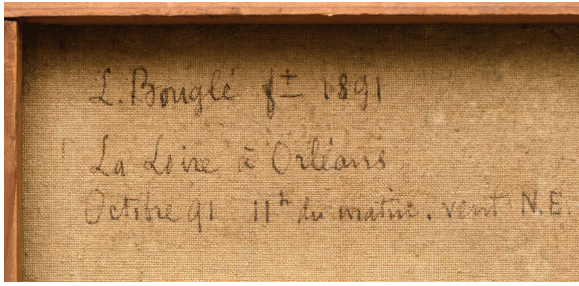 L. Bouglé f± 1891
La Loire à Orléans
Octobre 91 11h du matin. vent N.E.